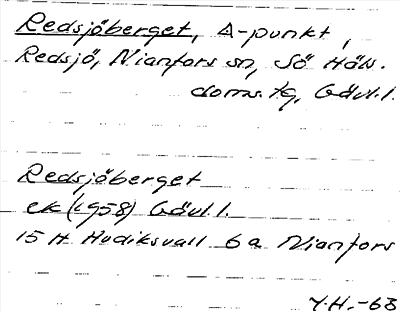 Redsjöberget, Δ-punkt,
Redsjö, Nianfors sn, Sö Häls.
doms. tg, Gävl.l.
Redsjöberget
ek (1958) Gävl.l.
15 H Hudiksvall 6a Nianfors
Y.H.-63